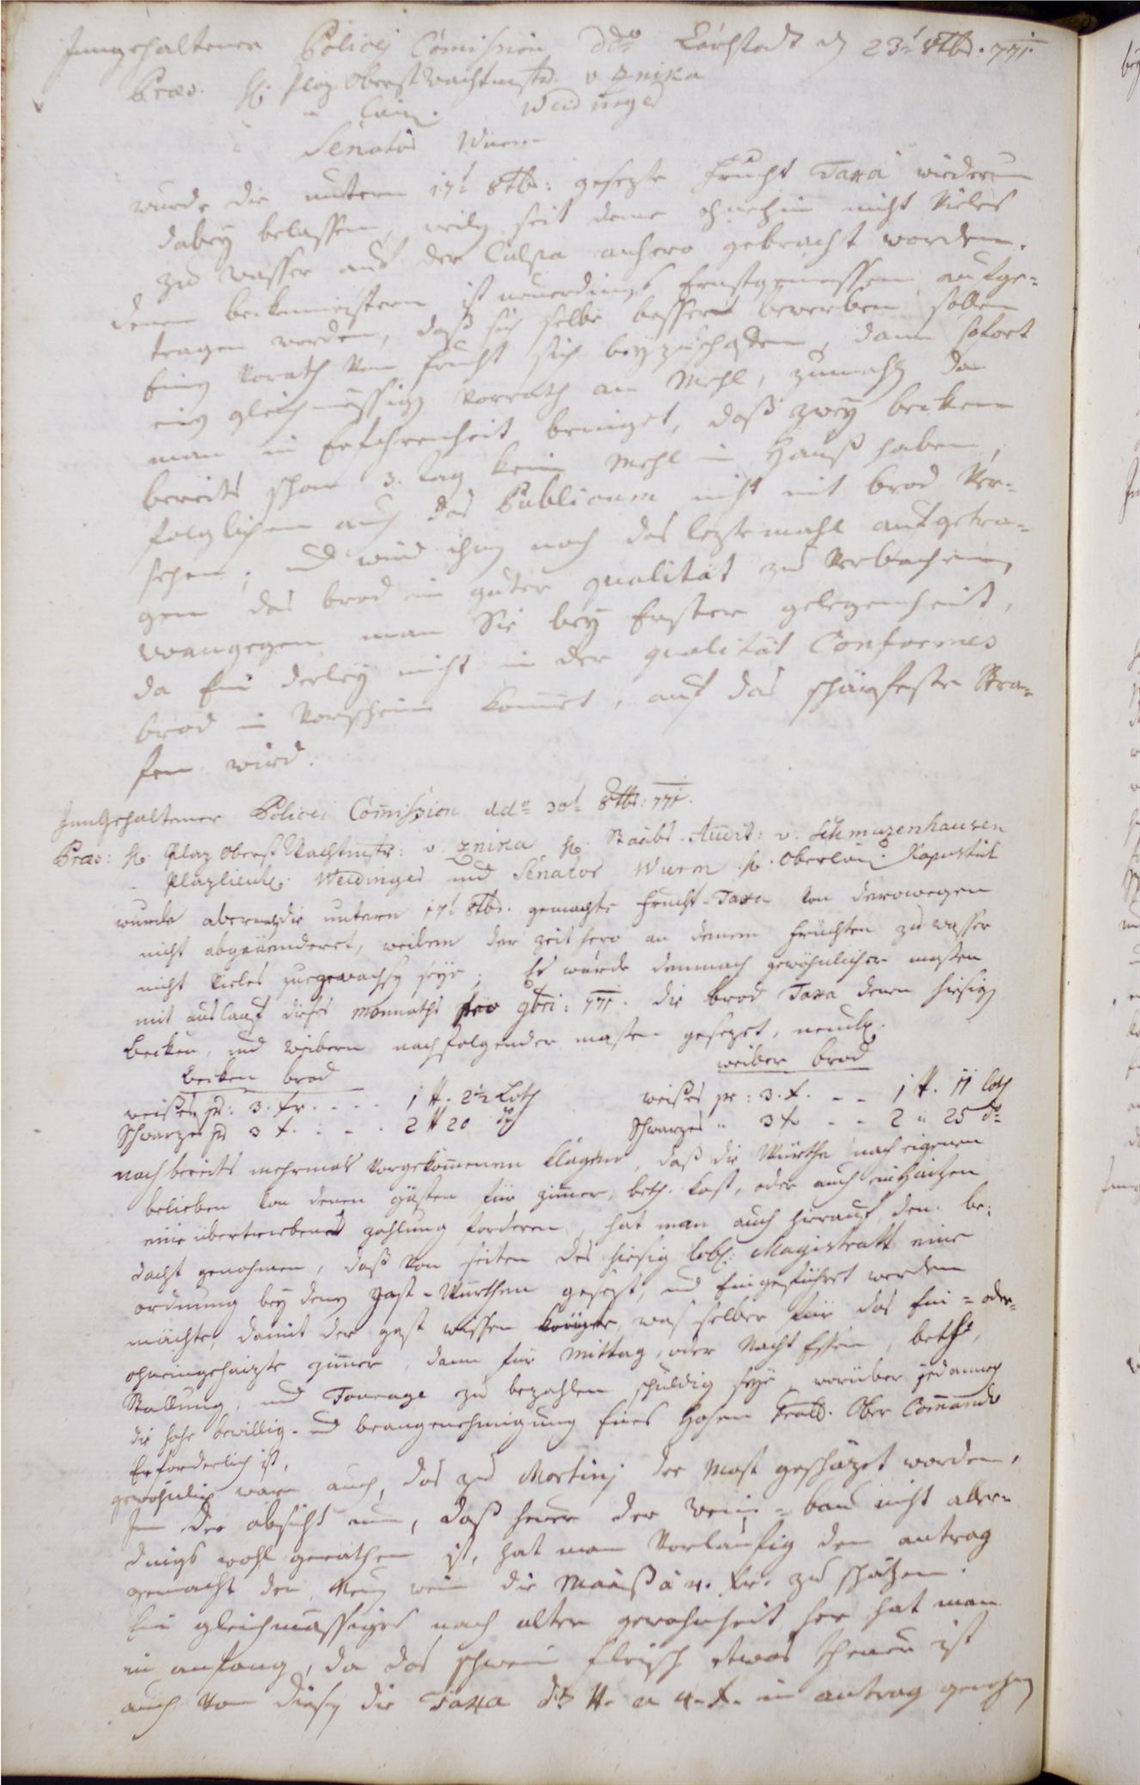 Inngehaltener Policej Comission ddo Carlstadt den 23t 8tbr. 771.
Præs. H: Plaz Obrist Wachtmstr. v Znika
" Lieu. Weidinger
Senator Wurm
wurde die unterm 17t 8tbr: gesezte Frucht Taxa wiederum
dabey belassen, weilen seit deme ohnehin nicht Vieles
zu Wasser aus der Culpa anhero gebracht worden.
denen beckenmeistern ist neuerdings Ernstgemessen aufge=
tragen worden, daß sich selbe bessers bewerben sollen
einen Vorath von Frucht sich beyzuschaffen, dann sofort
ein gleichmässigen Vorrath an Mehl, zumahlen da
man in Erfahrenheit bringet, daß zwey becken
bereits schon 3. Tag kein Mehl in Hauß haben,
folglichen auch das Publicum nicht mit brod Ver=
sehen; und wird ihnen noch das leztemahl aufgetra=
gen das brod in guter qualitæt zu Verbachen,
wangegen man Sie bey Erster gelegenheit,
da Ein derley nicht in der qualitæt Conformes
brod in Vorschein kommet, auf das schärfeste Stra=
fen wird.
InnGehaltener Policei Comission ddo 30t 8tbr: 771.
Præs: H: Plaz Obrist Wachtmstr: v. Znika H. Staabs Audit: v. Schmuzenhausen
Plazlieut. Weidinger und Senator Wurm H. Oberlieu: Kapustat
wurde abermahl die untern 17t 8tbr. gemachte Frucht-Taxa von darowegen
nicht abgeänderet, weilen der zeit hero an denen Früchten zu wasser
nicht Vieles zugewachsen seye; Es wurde demnach gewöhnlicher massen
mit auslauf dieses Monnaths pro 9bri: 771. die brod Taxa denen hiesigen
becken, und weibern nachfolgender massen gesezet, nemlich.
becken brod weiber brod
weisses pr: 3. Xr. . . . . 1 ℔. 2½ Loth weisses pr: 3. X. . . 1 ℔. 11 loth
Schwarzes pr 3 X. . . . 2 ℔ 20 do Schwarzes " 3 X . . 2 " 25 do
nach bereits mehrmals Vorgekommenen Klagen, daß die Würthe nach eigenen
belieben von denen gästen für zimmer, beth. Kost, oder auch einhaizen
eine übertriebene zahlung forderen, hat man auch hierauf den be=
dacht genohmen, daß Von seiten des hiesig löbl: Magistrats eine
ordnung bey denen gast-Würthen gesezt, und Eingeführet werden
möchte, damit der gast wissen könne, was selber für das Ein= oder
ohneingehaizte zimmer, dann für Mittag, oder Nacht Essen, beth,
Stallung, und Fourage zu bezahlen schuldig seye, worüber jedannoch
die hohe bewillig- und beangenehmigung Eines Hohen Ober Commando
Erforderlich ist.
gewöhnlich ware auch, das zu Martinj der Most geschäzet worden,
In der absicht nun, daß heuer der Wein-bau nicht aller=
dings wohl gerathen ist, hat man Vorläufig den antrag
gemacht den Neuen wein die Maaß à 4. Xr. zu schäzen.
Ein gleichmässiges nach alter gewohnheit her hat man
in anfang, da das schwein fleisch etwas theuer ist
auch Von diesen die Taxa das ℔. a 4. X. in antrag genohmen